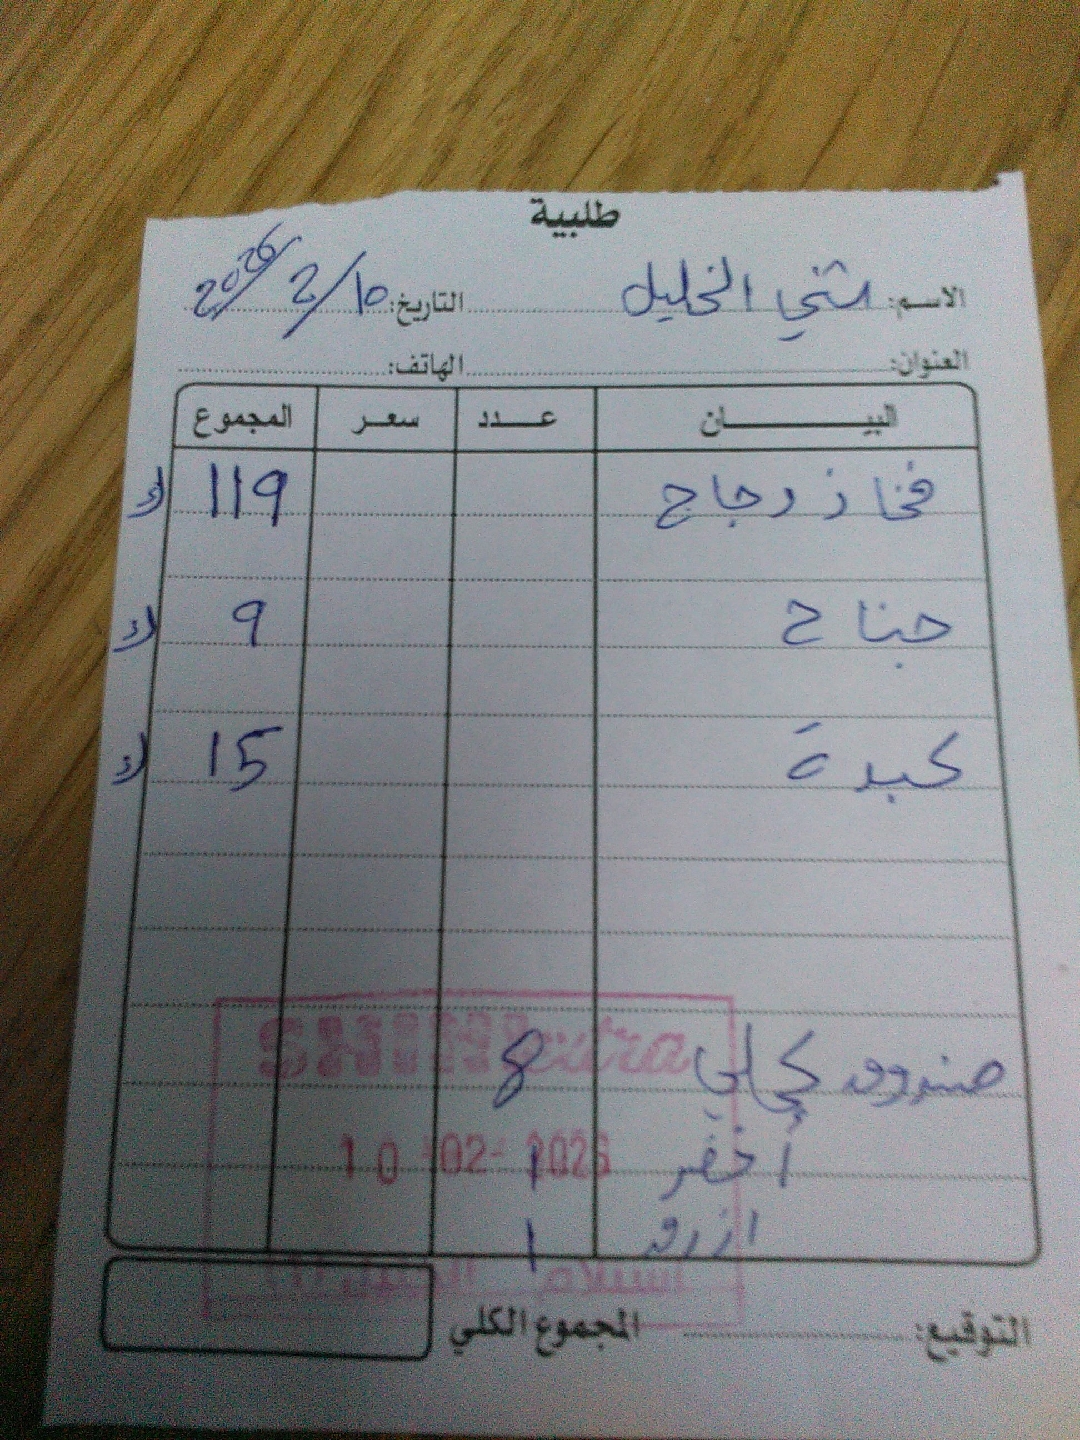 طلبية
الاسم: مثنى الخليل التاريخ: 10/2/2026
العنوان: الهاتف:
البيـــــان عـــدد سعـر المجموع
فخاذ دجاج 119 ك
جناح 9 ك
كبدة 15 ك
صندوق كحلي 8
أخضر 1
ازرق 1
SHINI extra
10-02-2026
استلام الخليل
التوقيع: المجموع الكلي